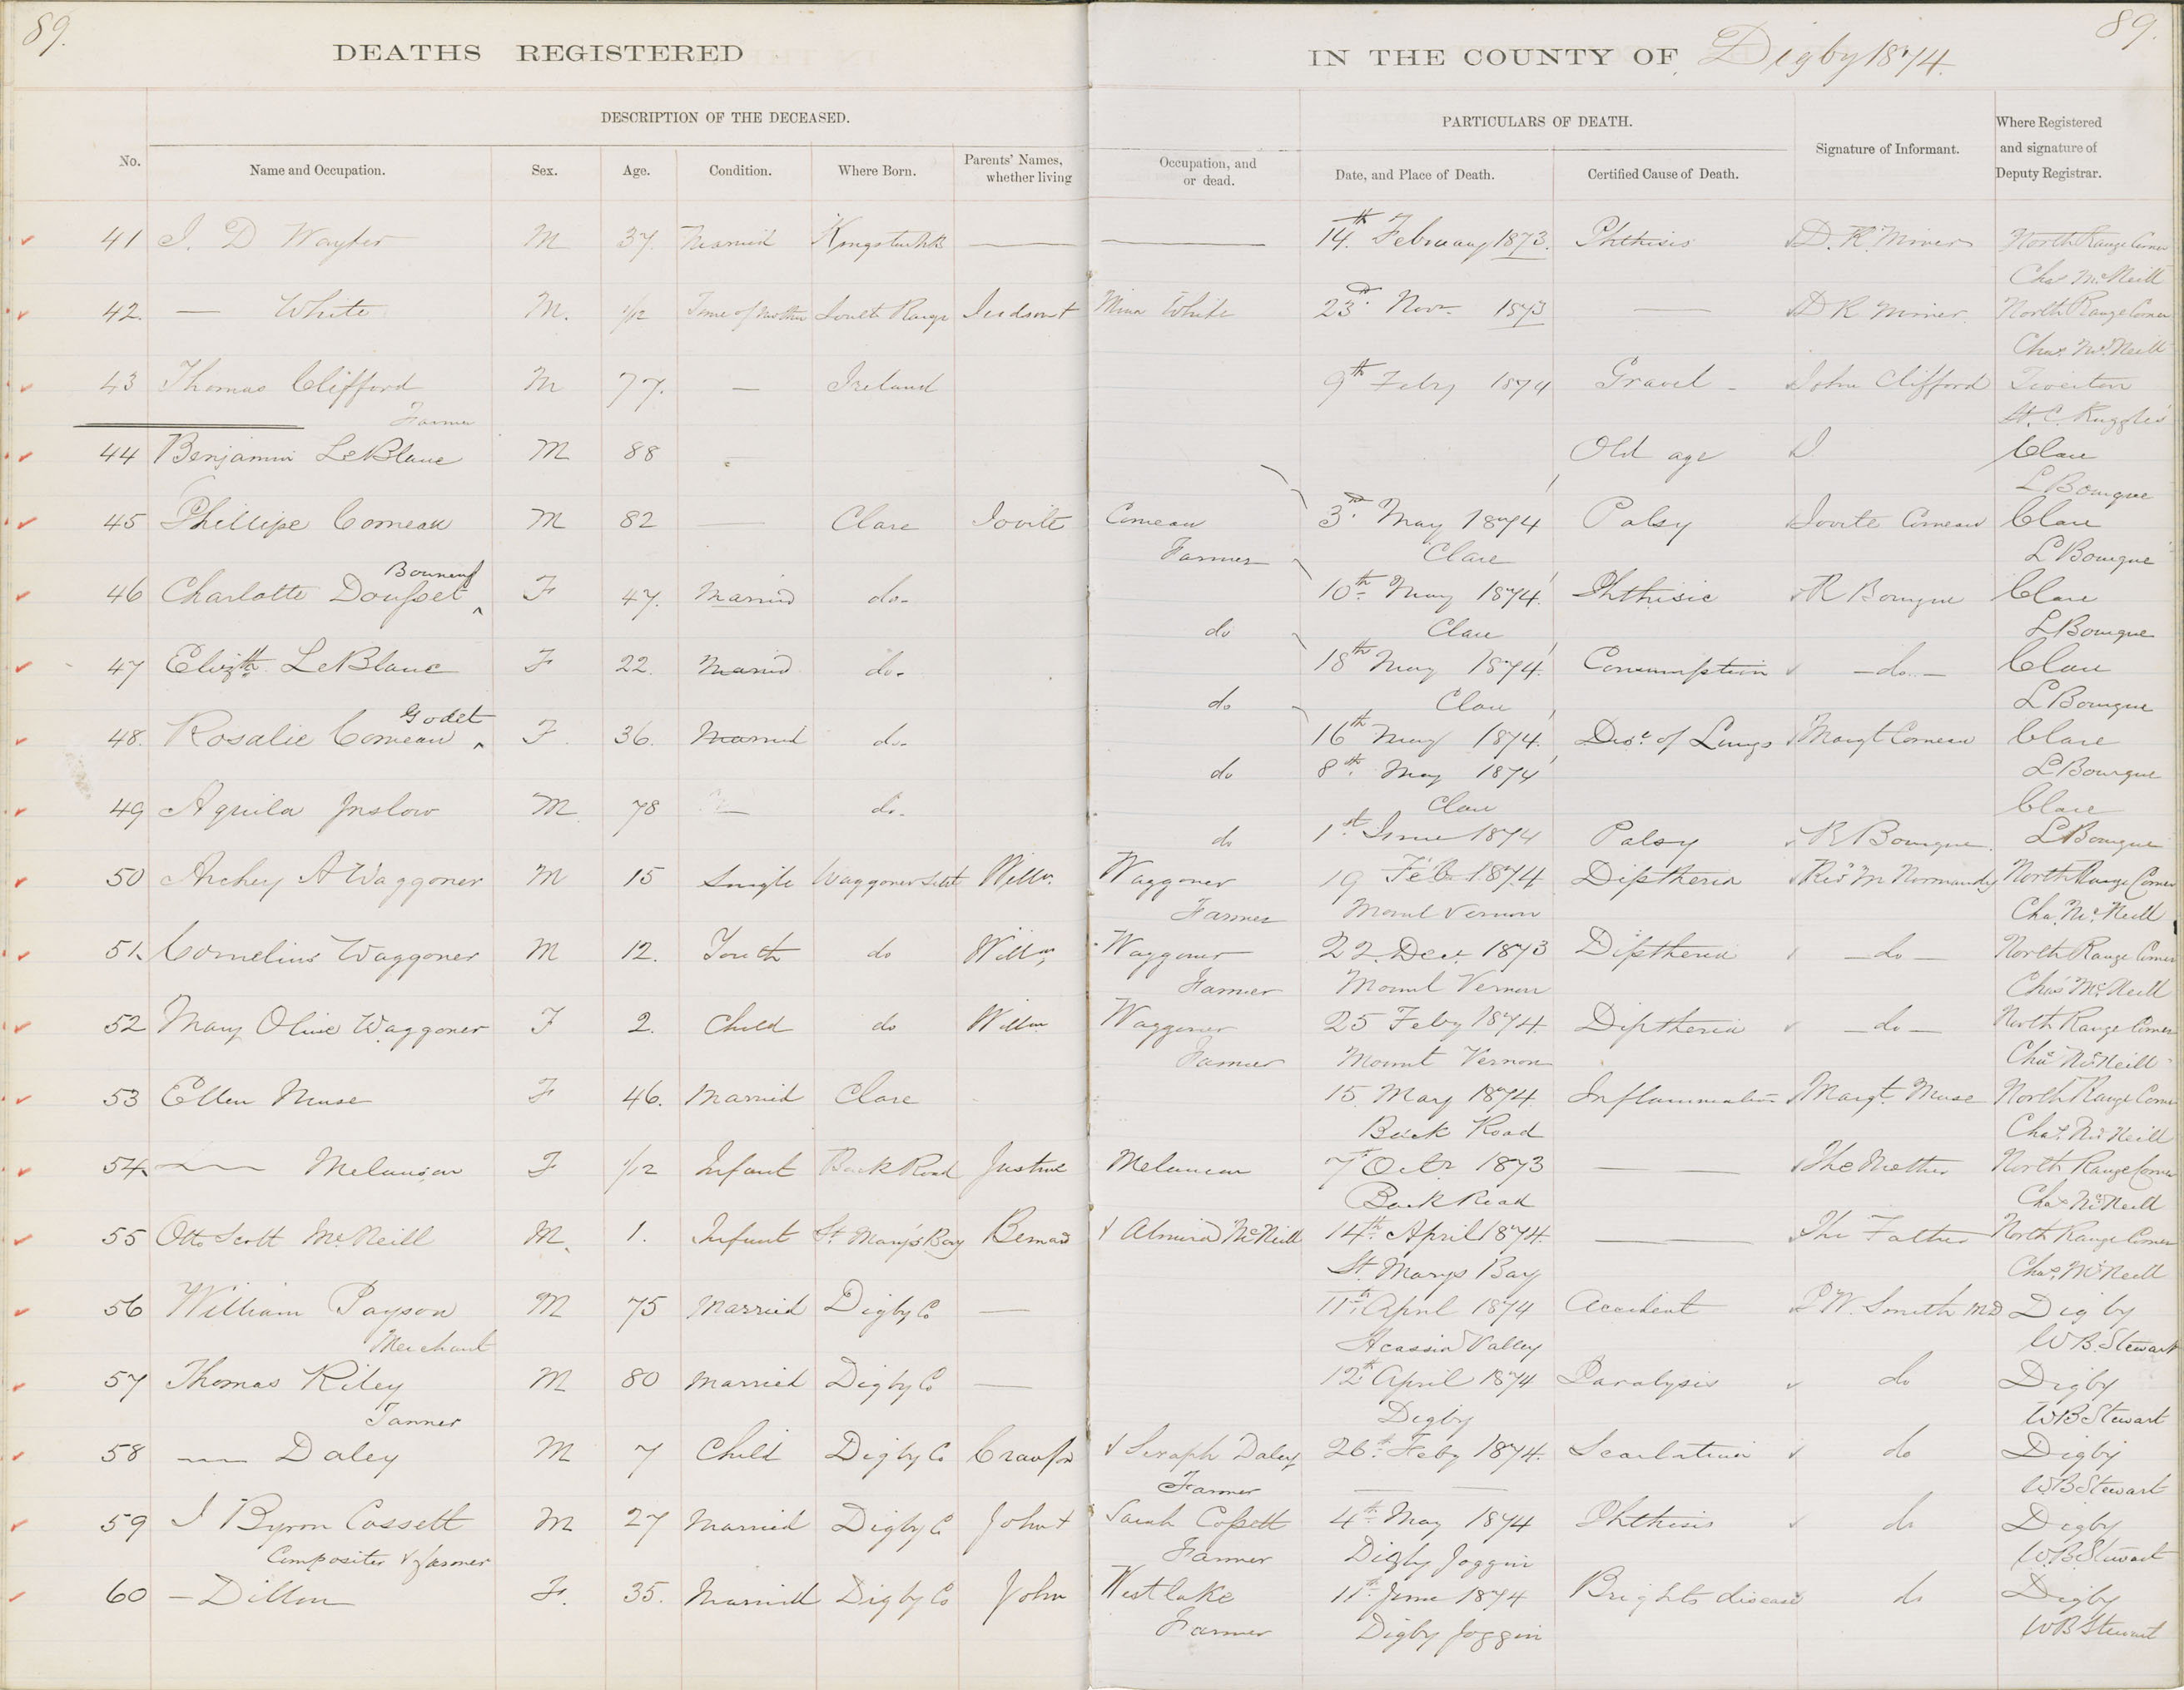 89. 89.
DEATHS REGISTERED IN THE COUNTY OF Digby 1874.
DESCRIPTION OF THE DECEASED. PARTICULARS OF DEATH.
No. Name and Occupation. Sex. Age. Condition. Where Born. Parents' Names, whether living Occupation, and or dead. Date, and Place of Death. Certified Cause of Death. Signature of Informant. Where Registered and signature of Deputy Registrar.
41 J. D M 37. Married 14th. February 1873. Phthisis D. R. Miner North Range Corner
Chas McNeill
42. — White M. 1/12 South Range Judson + Mina White 23d. Nov. 1873 — D R Miner North Range Corner
Chas. McNeill
43 Thomas Clifford M 77. — Ireland 9th Feby 1874 Gravel John Clifford Tiverton
Farmer
44 Benjamin LeBlanc M 88 — Old age Clare
L Bourque
45 Phillipe Comeau M 82 — Clare Jovite Comeau 3d. May 1874 Palsy Jovite Comeau Clare
Farmer Clare L Bourque
Bonnenf
46 Charlotte Doufset ^ F 47. Married do. 10th May 1874. Phthisic R Bourque Clare
do Clare L Bourque
47 Elizth LeBlanc F 22. Married do. 18th May 1874. Consumption — do. — Clare
do Clare L Bourque
Godet
48. Rosalie Comeau ^ F. 36. Married do. 16th May 1874. Dise. of Lungs Margt Comeau Clare
do 8th. May 1874 L Bourque
49 Aquila Inslow M 78 — do. Clare Clare
do 1st. June 1874 Palsy R Bourque L Bourque
50 Archey A Waggoner M 15 Single Waggoner Settt Willm. Waggoner 19 Feb 1874 Diptheria Normandy North Range Corner
Farmer Mount Vernon Chas. McNeill
51. Cornelius Waggoner M 12. Youth do Willm, Waggoner 22. Dec. 1873 Diptheria — do — North Range Corner
Farmer Mount Vernon Chas McNeill
52 Mary Olive Waggoner F 2. Child do Willm Waggoner 25 Feby 1874. Diptheria — do — North Range Corner
Farmer Mount Vernon Chas McNeill
53 Ellen Muse F 46. Married Clare 15. May 1874. Inflammation Margt. Muse North Range Corner
Back Road Chas. McNeill
54. — Melancon F 1/12 Infant Back Road Melancon 7 Octr 1873 — — The Mother North Range Corner
Back Road Chas McNeill
55 Otto Scott McNeill M. 1. Infant St Mary's Bay Bernard + Almira McNeill 14th April 1874. — The Father North Range Corner
St. Marys Bay Chas. McNeill
56 William Payson M 75 Married Digby Co — 11th. April 1874 Accident P W. Smith MD Digby
Merchant Acassia Valley W B. Stewart
57 Thomas Riley M 80 Married Digby Co — 12th April 1874 Paralysis do Digby
Tanner Digby W B Stewart
58 — Daley M 7 Child Digby Co + Seraph Daley 26th. Feby 1874. Scarlatina do Digby
Farmer — — W B Stewart
59 J Byron Cossett M 27 Married Digby Co John + Sarah Cossett 4th. May 1874 Phthisis do Digby
Compositer & farmer Farmer Digby Joggin W B Stewart
60 — Dillon F. 35. Married Digby Co John Westlake 11th June 1874 Brights disease do Digby
Farmer Digby Joggin W B Stewart